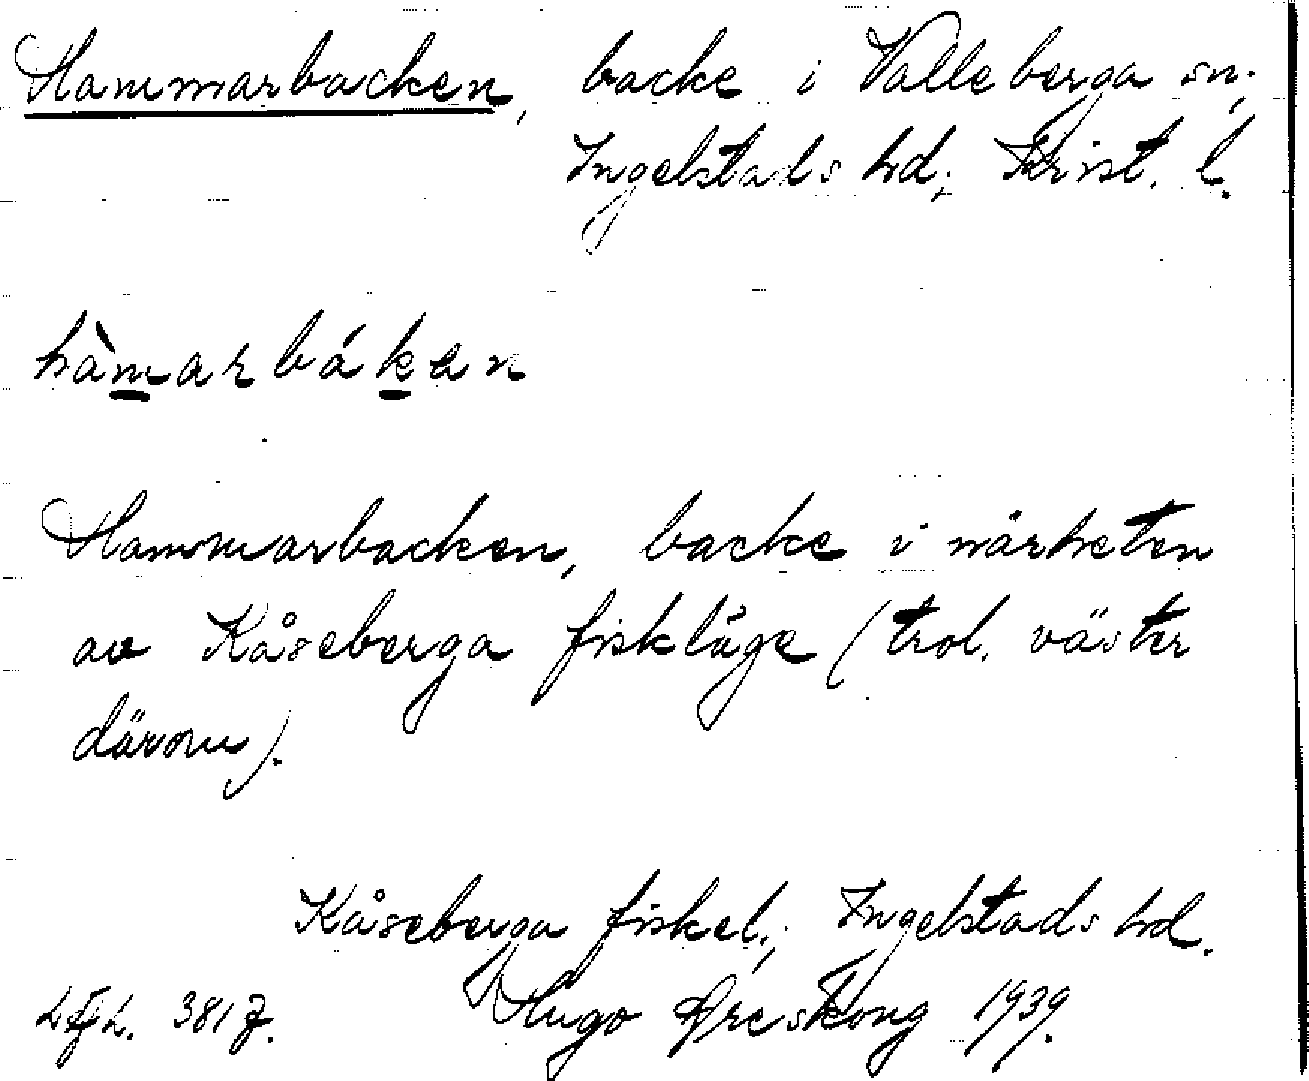 Hammarbacken, backe i Valleberga sn;
Ingelstads hd; Krist. l.
hàmarbáken
Hammarbacken, backe i närheten
av Kåseberga fiskläge (trol. väster
därom).
Kåseberga fiskel.; Ingelstads hd.
Hugo Areskoug 1939.